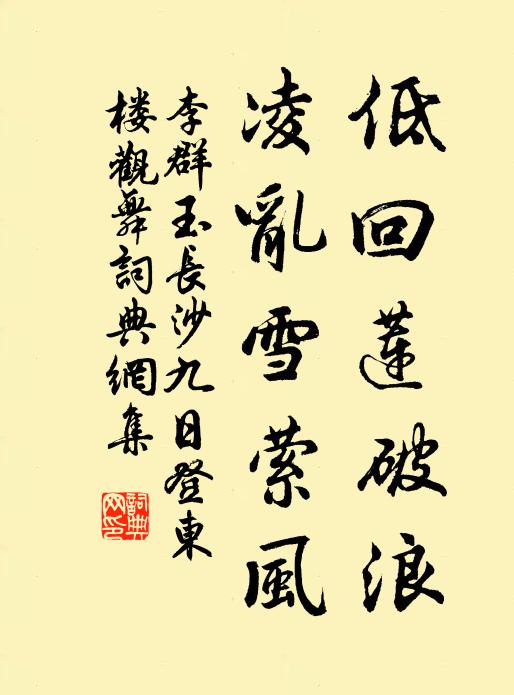 低回蓮破浪
凌亂雪縈風
李群玉長沙九日登東
楼觀舞詞典網集
詞典
网印